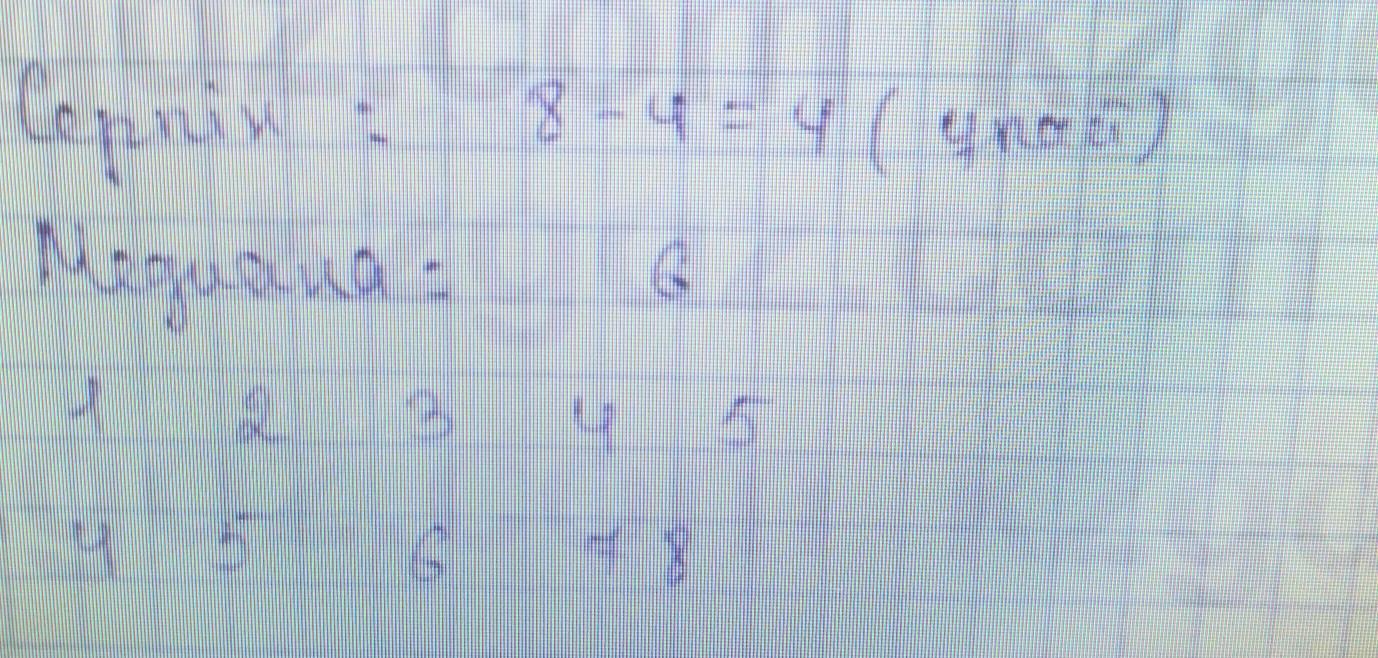 Серпін : 8 - 4 = 4 ( ұпай )
Медиана : 6
1 2 3 4 5
4 5 6 7 8